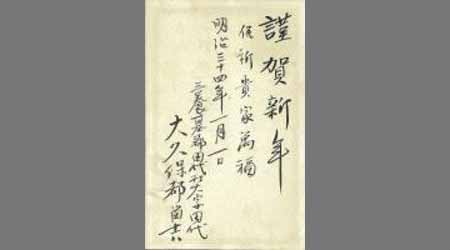 謹賀新年
併祈貴家萬福
明治三十四年一月一日
三養基郡田代村大字田代
大久保郡